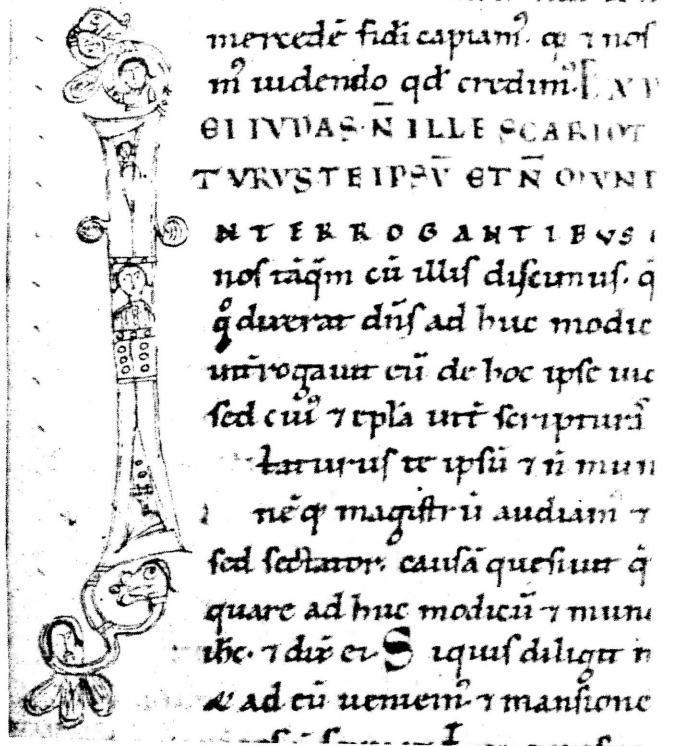 mercedē fidi capiam᷒. ⁊ nos
m᷒ uidendo qđ credim᷒. EXP
EI IVDAS. N̄ ILLE SCARIOT
TVRVS TE IPSV̄ ET N̄ MVND
NTERROGANTIBVS
nos tāq̄m cū illis discimus. q̄
dixerat dn̄s ad huc modic
int̄rogauit eū de hoc ipse iud
sed cui᷒ ⁊ ep̄la int̄ scripturas
taturus te ipsū ⁊ n̄ mun
magistrū audiam ⁊
sed sectator. causā quesiuit q̄
quare ad huc modicū ⁊ mund
ih̄c. ⁊ dix̄ ei. Siquis diligit m
ad eū ueniem᷒ ⁊ mansione